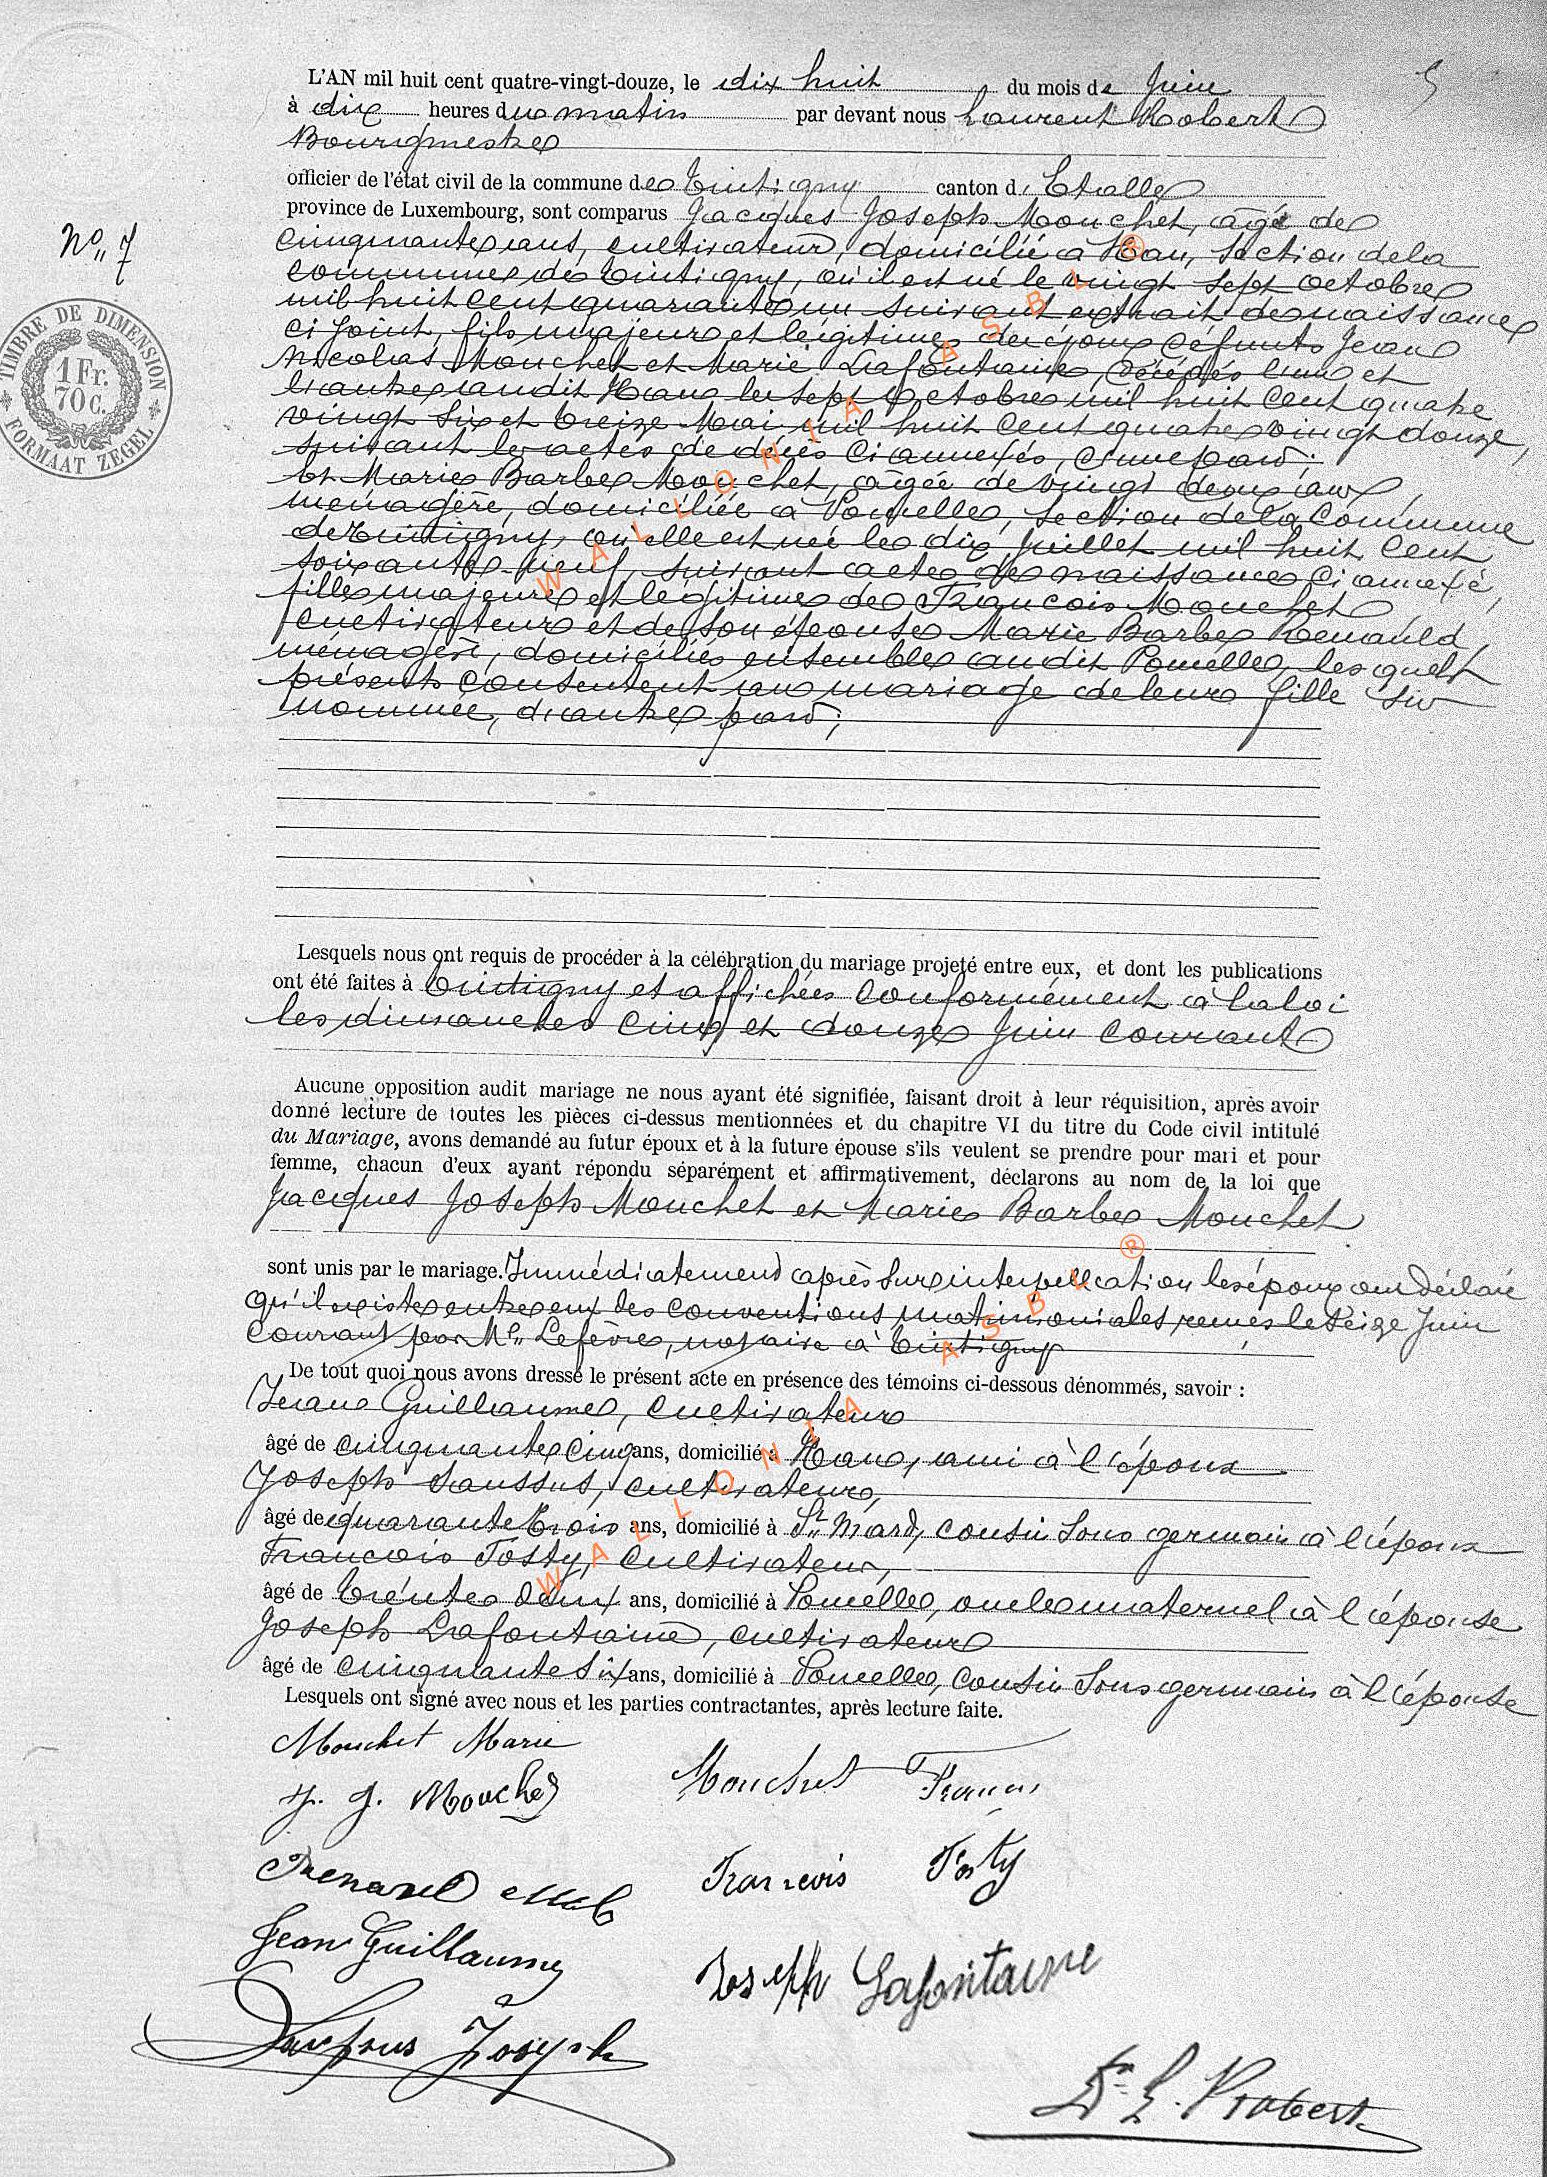 5
L'AN mil huit cent quatre-vingt-douze, le dix huit du mois de Juin
à dix heures du matin par devant nous Laurent Robert
Bourgmestre
officier de l'état civil de la commune de Tintigny canton d'Etalle
province de Luxembourg, sont comparus Jacques Joseph Mouchet, âgé de
cinquante ans, cultivateur, domicilié à Han, section de la
commune de Tintigny, où il est né le vingt sept octobre
mil huit cent quarante un suivant extrait de naissance
ci joint, fils majeur et légitime des époux défunts Jean
Nicolas Mouchet et Marie Lafontaine, décédés l'un et
l'autre audit Han les sept octobre mil huit cent quatre
vingt six et treize Mai mil huit cent quatre vingt douze,
suivant les actes de décès ci annexés, d'une part;
Et Marie Barbe Mouchet, âgée de vingt deux ans,
ménagère, domiciliée à Poncelle, section de la commune
de Tintigny, où elle est née le dix Juillet mil huit cent
soixante neuf, suivant acte de naissance ci annexé,
fille majeure et légitime de François Mouchet
cultivateur et de son épouse Marie Barbe Renauld,
ménagère, domiciliés ensemble audit Poncelle, lesquels
présents consentent au mariage de leur fille sus
nommée, d'autre part;
No 7
TIMBRE DE DIMENSION
1 Fr.
70 C.
FORMAAT ZEGEL
Lesquels nous ont requis de procéder à la célébration du mariage projeté entre eux, et dont les publications
ont été faites à Tintigny et affichées conformément à la loi
les dimanches cinq et douze Juin courant
Aucune opposition audit mariage ne nous ayant été signifiée, faisant droit à leur réquisition, après avoir
donné lecture de toutes les pièces ci-dessus mentionnées et du chapitre VI du titre du Code civil intitulé
du Mariage, avons demandé au futur époux et à la future épouse s'ils veulent se prendre pour mari et pour
femme, chacun d'eux ayant répondu séparément et affirmativement, déclarons au nom de la loi que
Jacques Joseph Mouchet et Marie Barbe Mouchet
sont unis par le mariage. Immédiatement après sur interpellation les époux ont déclaré
qu'il existe entre eux des conventions matrimoniales, reçues le seize Juin
courant par Me Lefèvre, notaire à Tintigny
De tout quoi nous avons dressé le présent acte en présence des témoins ci-dessous dénommés, savoir :
Jean Guillaume, cultivateur
âgé de cinquante cinq ans, domicilié à Han, ami à l'époux
Joseph Saussus, cultivateur,
âgé de quarante trois ans, domicilié à St Mard, cousin sous germain à l'époux
François Tosty, cultivateur,
âgé de trente deux ans, domicilié à Poncelle, oncle maternel à l'épouse
Joseph Lafontaine, cultivateur
âgé de cinquante six ans, domicilié à Poncelle, cousin sous germain à l'épouse
Lesquels ont signé avec nous et les parties contractantes, après lecture faite.
Mouchet Marie
J. J. Mouchet
Mouchet François
François Tosty
Jean Guillaume
Joseph Lafontaine
Saussus Joseph
L. Robert
WALLONIA ASBL ®
WALLONIA ASBL ®